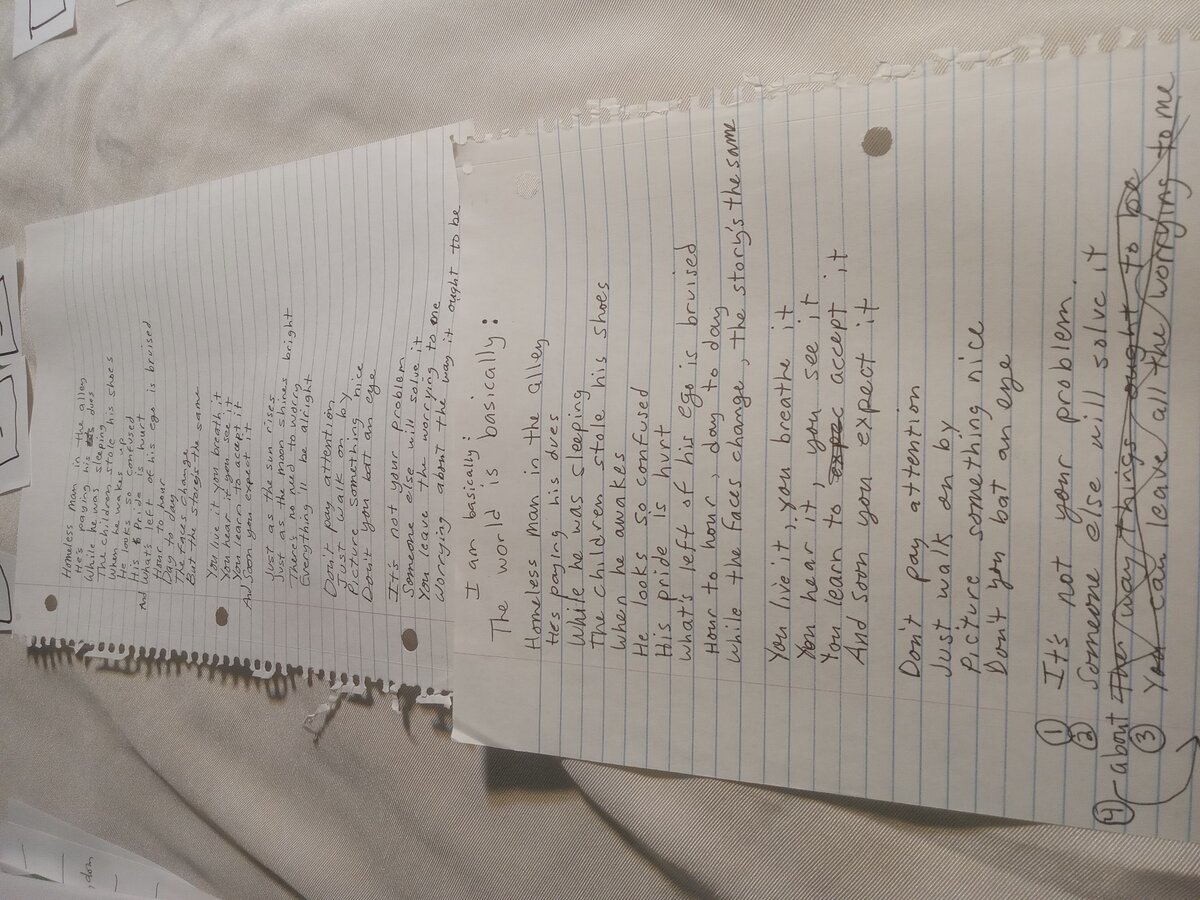 Homeless man in the alley
He's paying his dues
While he was sleeping
The children stole his shoes
When he wakes up
He looks so confused
And His Pride is hurt
What's left of his ego is bruised
Hour to hour
Day to day
The faces change
But the story's the same
You live it you breath it
You hear it you see it
You learn to accept it
And Soon you expect it
Just as the sun rises
Just as the moon shines bright
There's no need to worry
Everything'll be alright
Don't pay attention
Just walk on by
Picture something nice
Don't you bat an eye
It's not your problem
Someone else will solve it
You leave the worrying to me
Worrying about the way it ought to be
I am basically:
The world is basically:
Homeless man in the alley
He's paying his dues
While he was sleeping
The children stole his shoes
When he awakes
He looks so confused
His pride is hurt
What's left of his ego is bruised
Hour to hour, day to day
While the faces change, the story's the same
You live it, you breathe it
You hear it, you see it
You learn to expe accept it
And soon you expect it
Don't pay attention
Just walk on by
Picture something nice
Don't you bat an eye
① It's not your problem
② Someone else will solve it
④ about The way things ought to be
③ You can leave all the worrying to me
, dom